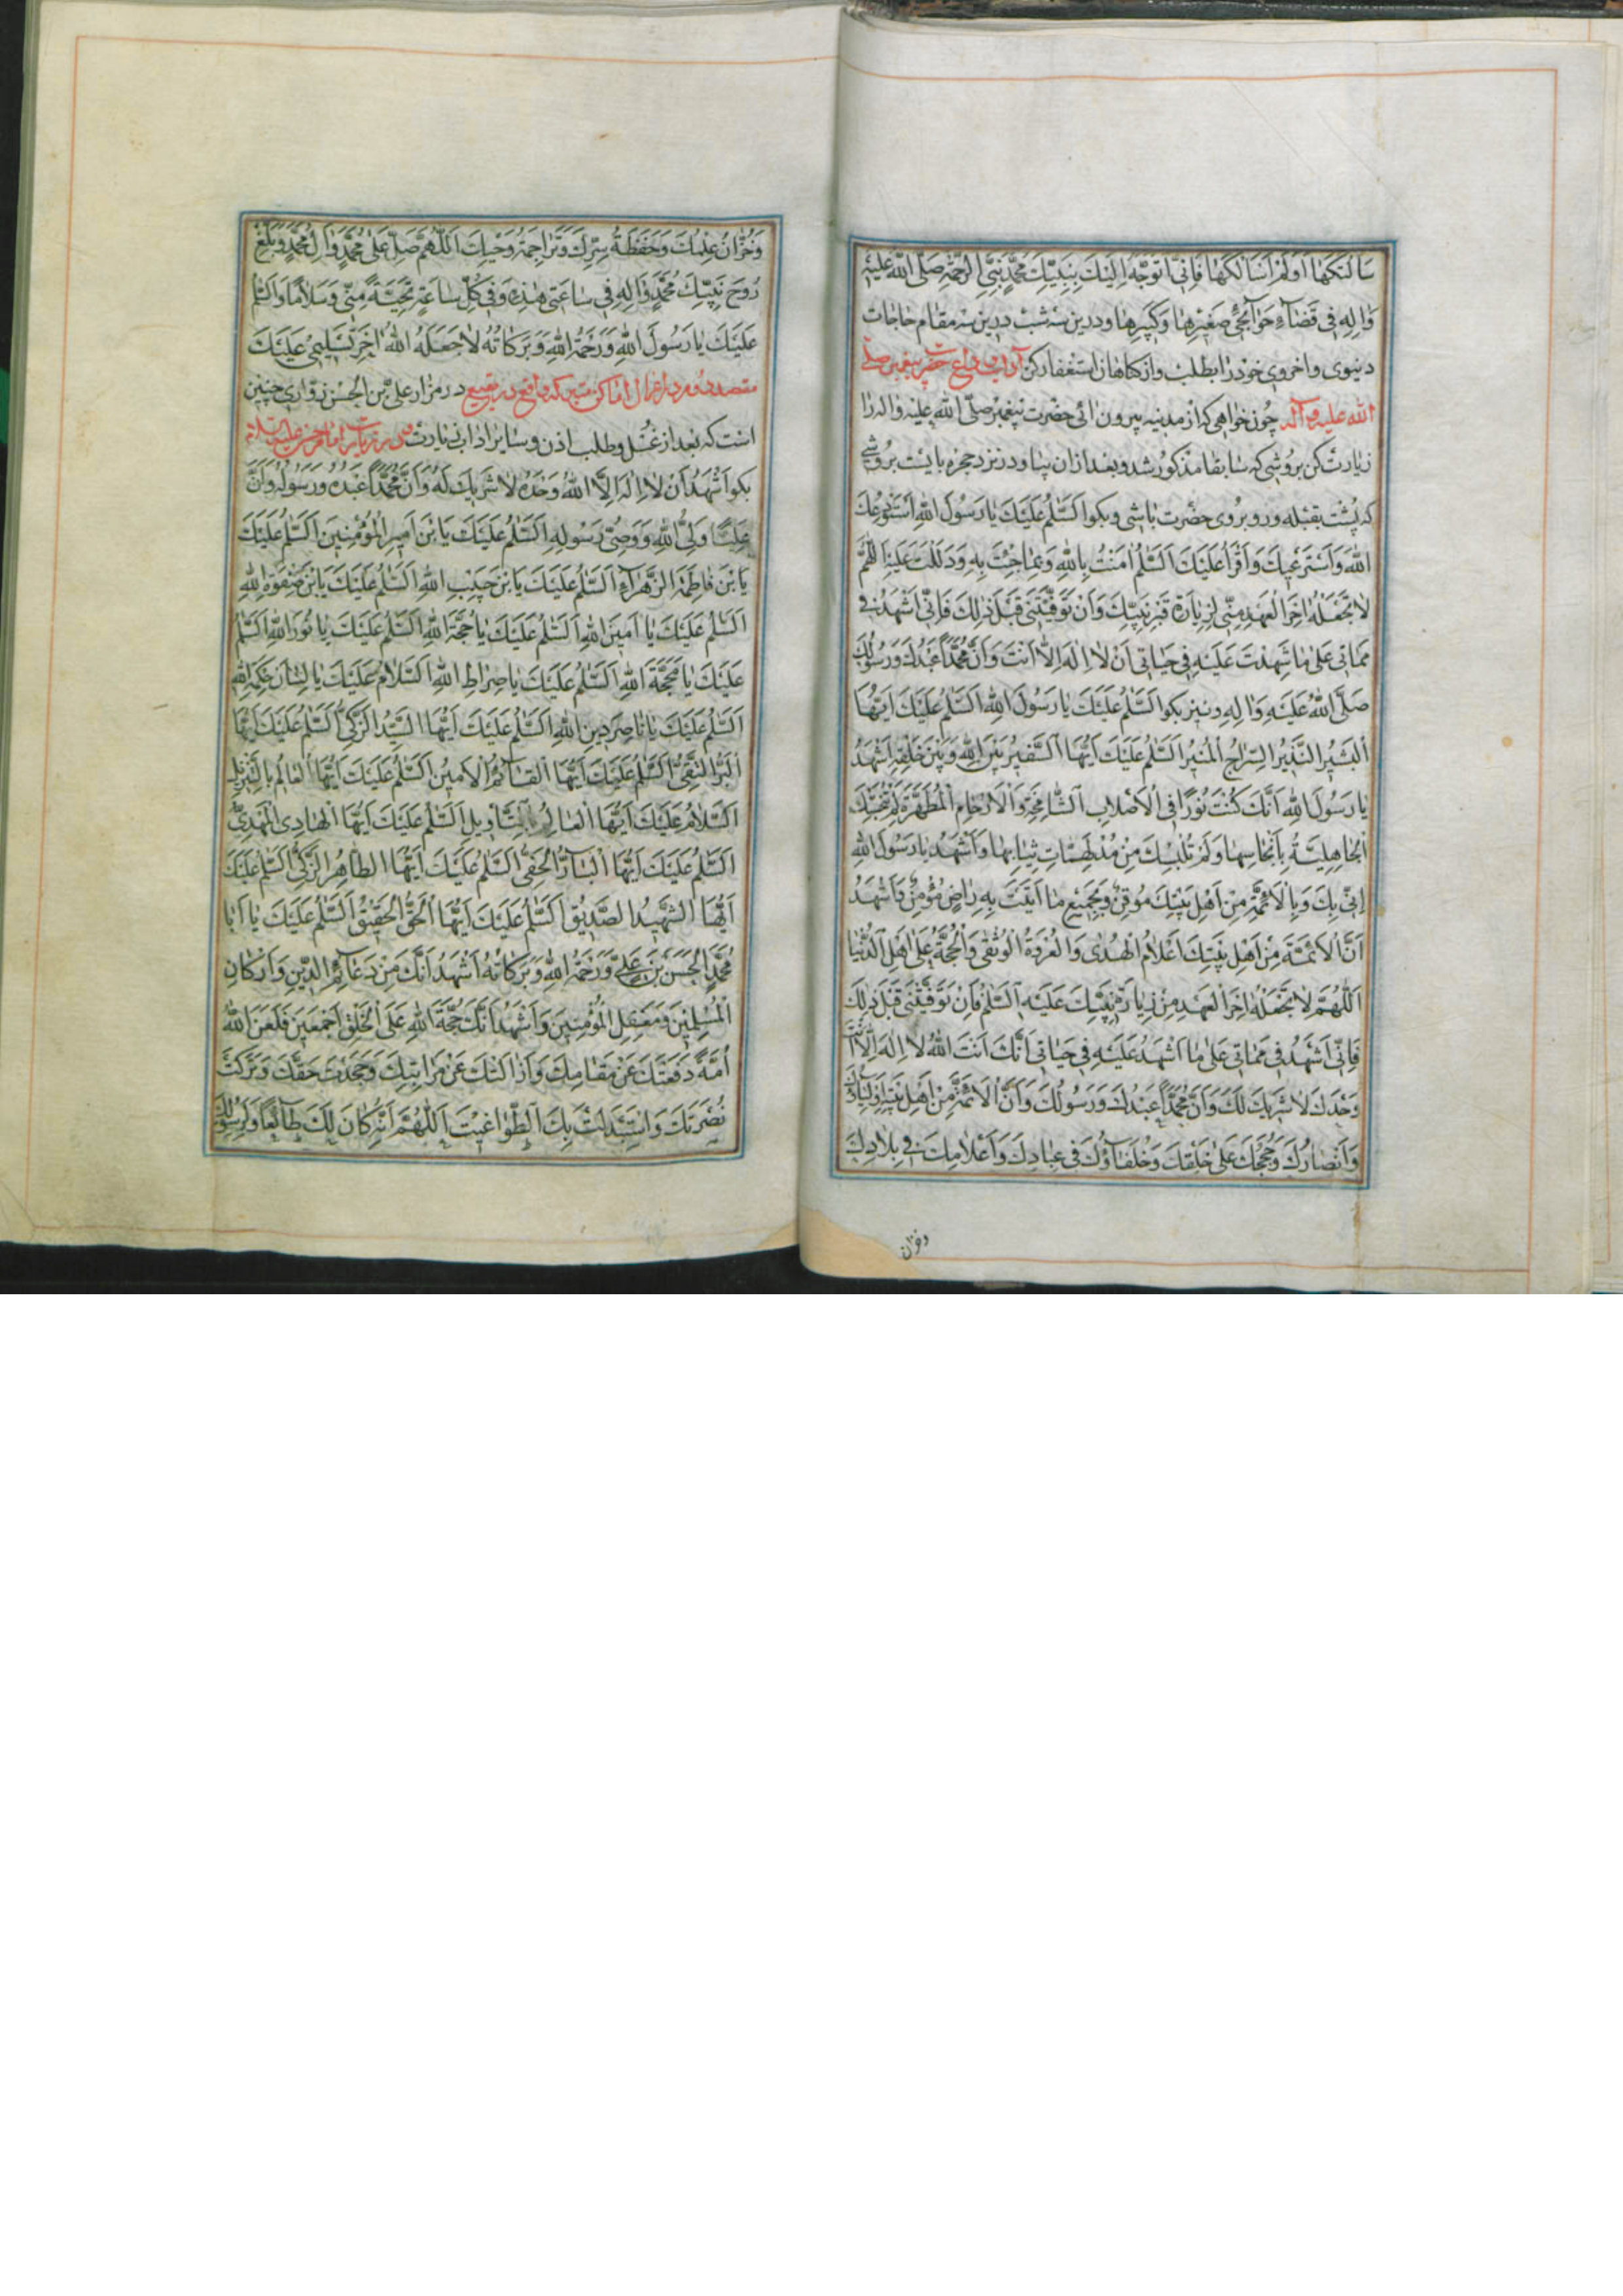 سَأَلْتُكَهَا أَوْ لَمْ أَسْأَلْكَهَا فَإِنِّي أَتَوَجَّهُ إِلَيْكَ بِنَبِيِّكَ مُحَمَّدٍ نَبِيِّ الرَّحْمَةِ صَلَّى اللهُ عَلَيْهِ
وَالِهِ فِي قَضَاءِ حَوَائِجِي صَغِيرِهَا وَكَبِيرِهَا ودرین سه شب درین سه مقام حاجات
دنیوی و اخروی خود را بطلب و از کناهان استغفار کن آداب وداع حضرت پیغمبر صلی
الله علیه و آله چون خواهی که از مدینه بیرون ائی حضرت پیغمبر صلّی الله علیه واله را
زیارت کن بروشی که سابقا مذکور شد و بعد از ان بیا و در نزد حجره بایست بروشی
که پشت بقبله و رو بروی حضرت باشی و بکو اَلسَّلٰمُ عَلَيْكَ يَا رَسُولَ اللهِ اَسْتَوْدِعُكَ
اللهَ وَاَسْتَرْعِيكَ وَاَقْرَأُ عَلَيْكَ اَلسَّلٰمُ اٰمَنْتُ بِاللهِ وَبِمَا جِئْتَ بِهِ وَدَلَلْتَ عَلَيْهِ اَللّٰهُمَّ
لَا تَجْعَلْهُ اٰخِرَ الْعَهْدِ مِنِّي لِزِيَارَةِ قَبْرِ نَبِيِّكَ وَاِنْ تَوَفَّيْتَنِي قَبْلَ ذٰلِكَ فَاِنِّي اَشْهَدُ فِي
مَمَاتِي عَلَى مَا شَهِدْتُ عَلَيْهِ فِي حَيَاتِي اَنْ لَا اِلٰهَ اِلَّا اَنْتَ وَاَنَّ مُحَمَّدًا عَبْدُكَ وَرَسُولُكَ
صَلَّى اللهُ عَلَيْهِ وَالِهِ و نیز بکو اَلسَّلٰمُ عَلَيْكَ يَا رَسُولَ اللهِ اَلسَّلٰمُ عَلَيْكَ اَيُّهَا
اَلْبَشِيرُ النَّذِيرُ السِّرَاجُ الْمُنِيرُ اَلسَّلٰمُ عَلَيْكَ اَيُّهَا السَّفِيرُ بَيْنَ اللهِ وَبَيْنَ خَلْقِهِ اَشْهَدُ
يَا رَسُولَ اللهِ اَنَّكَ كُنْتَ نُورًا فِي الْاَصْلَابِ الشَّامِخَةِ وَالْاَرْحَامِ الْمُطَهَّرَةِ لَمْ تُنَجِّسْكَ
الْجَاهِلِيَّةُ بِاَنْجَاسِهَا وَلَمْ تُلْبِسْكَ مِنْ مُدْلَهِمَّاتِ ثِيَابِهَا وَاَشْهَدُ يَا رَسُولَ اللهِ
اِنِّي بِكَ وَبِالْاَئِمَّةِ مِنْ اَهْلِ بَيْتِكَ مُوقِنٌ وَبِجَمِيعِ مَا اَتَيْتَ بِهِ رَاضٍ مُؤْمِنٌ وَاَشْهَدُ
اَنَّ الْاَئِمَّةَ مِنْ اَهْلِ بَيْتِكَ اَعْلَامُ الْهُدٰى وَالْعُرْوَةُ الْوُثْقٰى وَالْحُجَّةُ عَلَى اَهْلِ الدُّنْيَا
اَللّٰهُمَّ لَا تَجْعَلْهُ اٰخِرَ الْعَهْدِ مِنْ زِيَارَةِ نَبِيِّكَ عَلَيْهِ السَّلٰمُ فَاِنْ تَوَفَّيْتَنِي قَبْلَ ذٰلِكَ
فَاِنِّي اَشْهَدُ فِي مَمَاتِي عَلَى مَا اَشْهَدُ عَلَيْهِ فِي حَيَاتِي اَنَّكَ اَنْتَ اللهُ لَا اِلٰهَ اِلَّا اَنْتَ
وَحْدَكَ لَا شَرِيكَ لَكَ وَاَنَّ مُحَمَّدًا عَبْدُكَ وَرَسُولُكَ وَاَنَّ الْاَئِمَّةَ مِنْ اَهْلِ بَيْتِهِ اَوْلِيَاؤُكَ
وَاَنْصَارُكَ وَحُجَجُكَ عَلَى خَلْقِكَ وَخُلَفَاؤُكَ فِي عِبَادِكَ وَاَعْلَامُكَ فِي بِلَادِكَ
وخزان
وَخُزَّانُ عِلْمِكَ وَحَفَظَةُ سِرِّكَ وَتَرَاجِمَةُ وَحْيِكَ اَللّٰهُمَّ صَلِّ عَلَى مُحَمَّدٍ وَاٰلِ مُحَمَّدٍ وَبَلِّغْ
رُوحَ نَبِيِّكَ مُحَمَّدٍ وَاٰلِهِ فِي سَاعَتِي هٰذِهِ وَفِي كُلِّ سَاعَةٍ تَحِيَّةً مِنِّي وَسَلَامًا وَالسَّلٰمُ
عَلَيْكَ يَا رَسُولَ اللهِ وَرَحْمَةُ اللهِ وَبَرَكَاتُهُ لَا جَعَلَهُ اللهُ اٰخِرَ تَسْلِيمِي عَلَيْكَ
مقصد دوم در اعمال اماکن متبرکه واقع در بقیع در مزار علی بن الحسن زواری چنین
است که بعد از غسل و طلب اذن و سایر اداب زیارت در زیارت امام حسن علیه السلام
بکو اَشْهَدُ اَنْ لَا اِلٰهَ اِلَّا اللهُ وَحْدَهُ لَا شَرِيكَ لَهُ وَاَنَّ مُحَمَّدًا عَبْدُهُ وَرَسُولُهُ وَاَنَّ
عَلِيًّا وَلِيُّ اللهِ وَوَصِيُّ رَسُولِهِ اَلسَّلٰمُ عَلَيْكَ يَا بْنَ اَمِيرِ الْمُؤْمِنِينَ اَلسَّلٰمُ عَلَيْكَ
يَا بْنَ فَاطِمَةَ الزَّهْرَاءِ اَلسَّلٰمُ عَلَيْكَ يَا بْنَ حَبِيبِ اللهِ اَلسَّلٰمُ عَلَيْكَ يَا بْنَ صَفْوَةِ اللهِ
اَلسَّلٰمُ عَلَيْكَ يَا اَمِينَ اللهِ اَلسَّلٰمُ عَلَيْكَ يَا حُجَّةَ اللهِ اَلسَّلٰمُ عَلَيْكَ يَا نُورَ اللهِ اَلسَّلٰمُ
عَلَيْكَ يَا مَحَجَّةَ اللهِ اَلسَّلٰمُ عَلَيْكَ يَا صِرَاطَ اللهِ اَلسَّلَامُ عَلَيْكَ يَا لِسَانَ حِكْمَةِ اللهِ
اَلسَّلٰمُ عَلَيْكَ يَا نَاصِرَ دِينِ اللهِ اَلسَّلٰمُ عَلَيْكَ اَيُّهَا السَّيِّدُ الزَّكِيُّ اَلسَّلٰمُ عَلَيْكَ اَيُّهَا
الْبَرُّ التَّقِيُّ اَلسَّلٰمُ عَلَيْكَ اَيُّهَا الْقَائِمُ الْاَمِينُ اَلسَّلٰمُ عَلَيْكَ اَيُّهَا الْعَالِمُ بِالتَّنْزِيلِ
اَلسَّلَامُ عَلَيْكَ اَيُّهَا الْعَالِمُ بِالتَّاْوِيلِ اَلسَّلٰمُ عَلَيْكَ اَيُّهَا الْهَادِي الْمَهْدِيُّ
اَلسَّلٰمُ عَلَيْكَ اَيُّهَا الْبَارُّ الْحَفِيُّ اَلسَّلٰمُ عَلَيْكَ اَيُّهَا الطَّاهِرُ الزَّكِيُّ اَلسَّلٰمُ عَلَيْكَ
اَيُّهَا الشَّهِيدُ الصِّدِّيقُ اَلسَّلٰمُ عَلَيْكَ اَيُّهَا الْحَقُّ الْحَقِيقُ اَلسَّلٰمُ عَلَيْكَ يَا اَبَا
مُحَمَّدٍ الْحَسَنَ بْنَ عَلِيٍّ وَرَحْمَةُ اللهِ وَبَرَكَاتُهُ اَشْهَدُ اَنَّكَ مِنْ دَعَائِمِ الدِّينِ وَاَرْكَانِ
الْمُسْلِمِينَ وَمَعْقِلِ الْمُؤْمِنِينَ وَاَشْهَدُ اَنَّكَ حُجَّةُ اللهِ عَلَى الْخَلْقِ اَجْمَعِينَ فَلَعَنَ اللهُ
اُمَّةً دَفَعَتْكَ عَنْ مَقَامِكَ وَاَزَالَتْكَ عَنْ مَرَاتِبِكَ وَجَحَدَتْ حَقَّكَ وَتَرَكَتْ
نُصْرَتَكَ وَاسْتَبْدَلَتْ بِكَ الطَّوَاغِيتَ اَللّٰهُمَّ اِنَّهُ كَانَ لَكَ طَائِعًا وَلِرَسُولِكَ